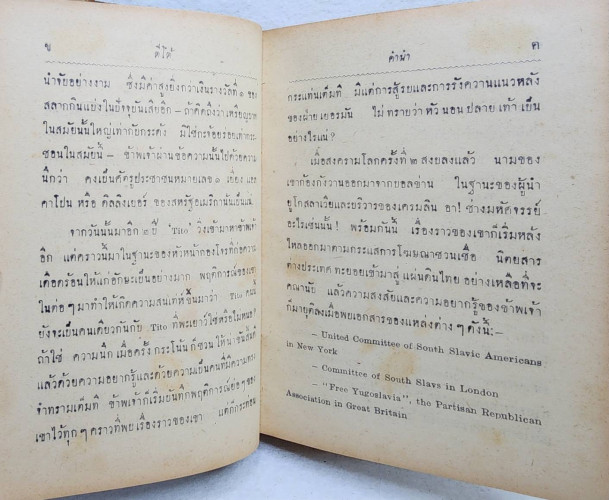 ข
ตีโต้
นำจับอย่างงาม ซึ่งมีค่าสูงยิ่งกว่าเงินรางวัลที่ ๑ ของ
สลากกินแบ่งในปัจจุบันเสียอีก – ถ้าคิดถึงว่า เหรียญบาท
ในสมัยนั้นใหญ่เท่ากับกระด้ง มิใช่กะจ้อยร่อยเท่ากระ
ซอนในสมัยนี้ – ข้าพเจ้าอ่านข้อความนั้นไปด้วยความ
นึกว่า คงเป็นศัตรูประชาชนหมายเลข ๑ เยี่ยง แอล
คาโปน หรือ ดิลลิงเยอร์ ของสหรัฐอเมริกานั่นเป็นแน่
จากวันนั้นมาอีก ๓ ปี 'Tito' วิ่งเข้ามาหาข้าพเจ้า
อีก แต่คราวนี้มาในฐานะของหัวหน้ากองโจรที่ก่อความ
เดือดร้อนให้แก่อักษะเป็นอย่างมาก พฤติการณ์ของเขา
ในต่อๆ มาทำให้เกิดความสนเท่ห์ขึ้นมาว่า Tito คนนี้
ยังจะเป็นคนเดียวกันกับ Tito ที่พะเยาว์ใช่หรือไม่หนอ?
ถ้าใช่ ความนึกเมื่อครั้งกระโน้นก็ชวนให้
แล้วด้วยความอยากรู้และด้วยความเป็นคนที่มีความทรง
จำทรามเต็มที ข้าพเจ้าก็เริ่มบันทึกพฤติการณ์ย่อๆ ของ
เขาไว้ทุกๆ คราวที่พบเรื่องราวของเขา แต่ก็กระท่อน
คำนำ
ค
กระแท่นเต็มที มีแต่การสู้รบและการรังควานแนวหลัง
ของฝ่ายเยอรมัน ไม่ทราบว่า หัว นอน ปลาย เท้า เป็น
อย่างไรแน่?
เมื่อสงครามโลกครั้งที่ ๒ สงบลงแล้ว นามของ
เขาก้องกังวานออกมาจากบอลข่าน ในฐานะของผู้นำ
ยูโกสลาเวียและบริวารของเครมลิน อา! ช่างมหัศจรรย์
อะไรเช่นนั้น! พร้อมกันนี้ เรื่องราวของเขาก็เริ่มหลั่ง
ไหลออกมาตามกระแสการโฆษณาชวนเชื่อ นิตยสาร
ต่างประเทศ ทะยอยเข้ามาสู่ แผ่นดินไทย อย่างเหลือที่จะ
คณานับ แล้วความสงสัยและความอยากรู้ของข้าพเจ้า
ก็มายุติลงเมื่อพบเอกสารของแหล่งต่างๆ ดังนี้:–
– United Committee of South Slavic Americans
in New York
– Committee of South Slavs in London
– "Free Yugoslavia", the Partisan Republican
Association in Great Britain